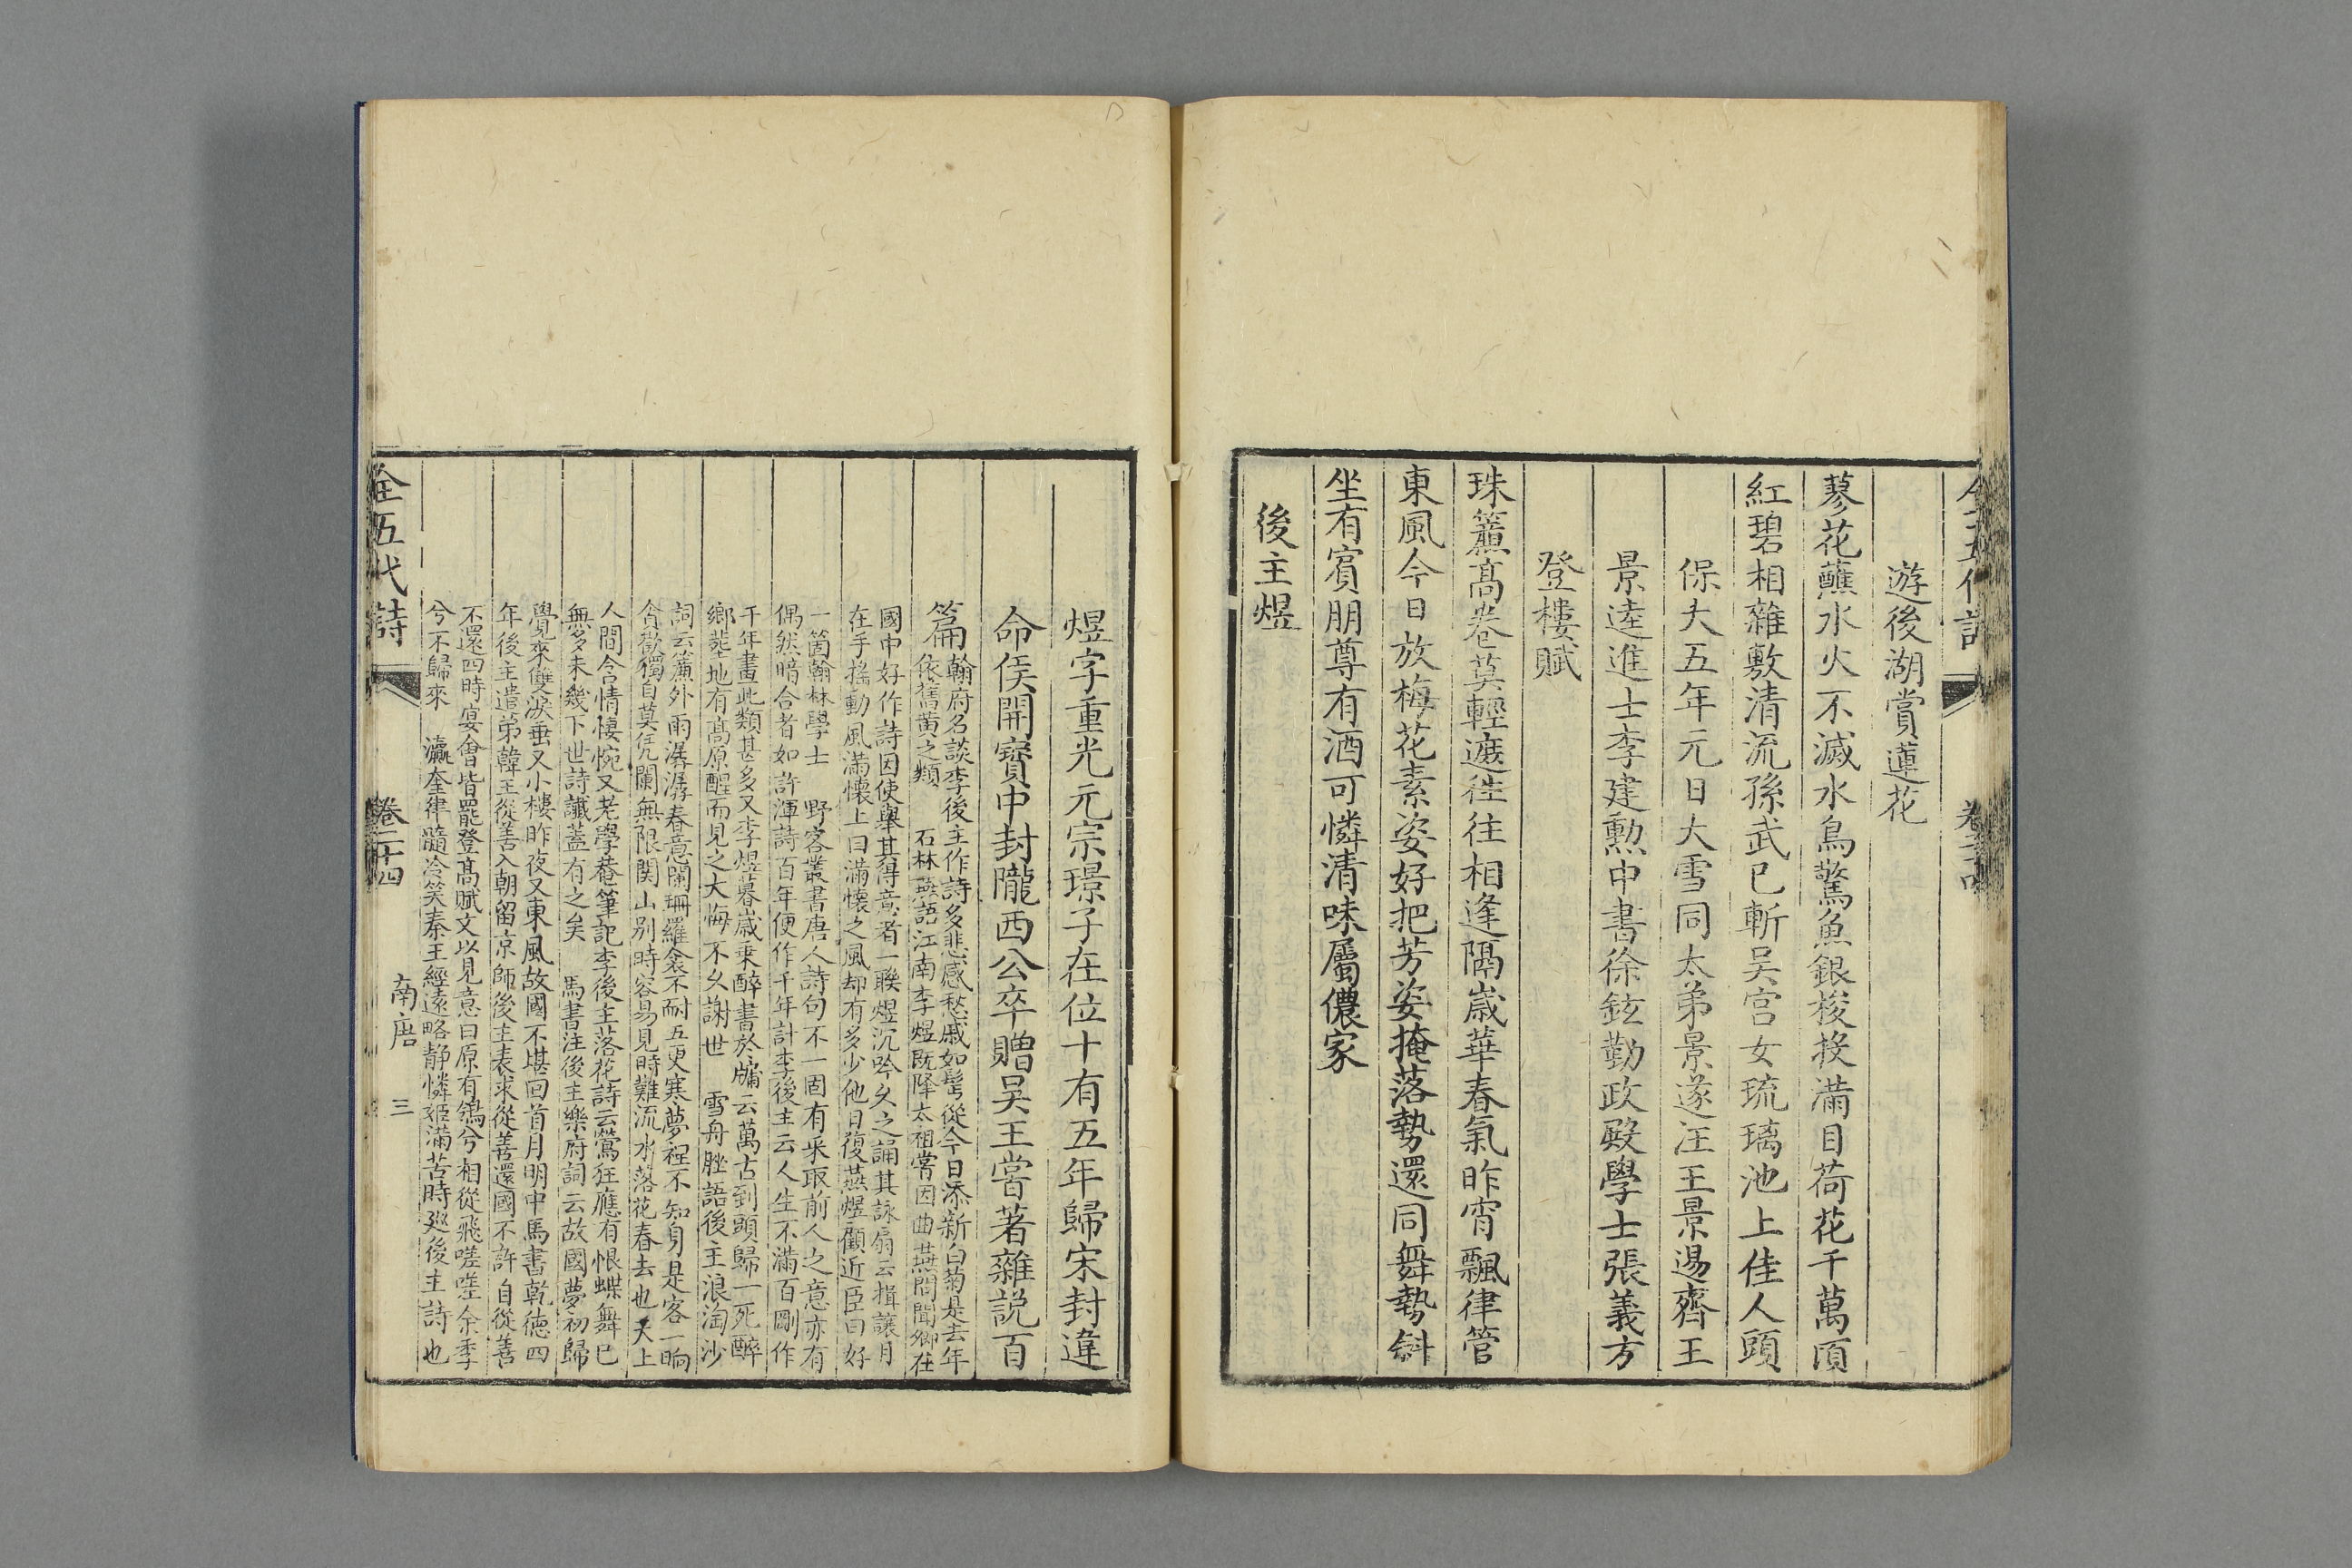 遊後湖賞蓮花
蓼花蘸水火不滅水鳥驚魚銀梭投滿目荷花千萬頃
紅碧相雜敷清流孫武已斬吳宮女琉璃池上佳人頭
保大五年元日大雪同太弟景遂汪王景逷齊王
景逵進士李建勲中書徐鉉勤政殿學士張義方
登樓賦
珠簾髙卷莫輕遮徃往相逢隔歳華春氣昨宵飄律管
東風今日放梅花素姿好把芳姿掩落勢還同舞勢斜
坐有賓朋尊有酒可憐清味屬儂家
後主煜
煜字重光元宗璟子在位十有五年歸宋封違
命侯開寶中封隴西公卒贈吳王嘗著雜説百
篇
翰府名談李後主作詩多悲感愁戚如髩從今日添新白菊是去年
依舊黄之類 石林燕語江南李煜既降太祖嘗因曲燕問聞卿在
國中好作詩因使舉其得意者一聯煜沉吟久之誦其詠扇云揖讓月
在手揺動風滿懷上曰滿懷之風却有多少他日復燕煜顧近臣曰好
一箇翰林學士 野客叢書唐人詩句不一固有采取前人之意亦有
偶然暗合者如許渾詩百年便作千年計李後主云人生不滿百剛作
千年畫此類甚多又李煜暮歳乗醉書於牖云萬古到頭歸一死醉
鄉塟地有髙原醒而見之大悔不久謝世 雪舟脞語後主浪淘沙
詞云簾外雨潺潺春意闌珊羅衾不耐五更寒夢裡不知身是客一晌
貪歡獨自莫凭闌無限関山别時容易見時難流水落花春去也天上
人間含情悽惋又老學菴筆記李後主落花詩云鶯狂應有恨蝶舞已
無多未幾下世詩讖蓋有之矣 馬書注後主樂府詞云故國夢初歸
覺來雙淚垂又小樓昨夜又東風故國不堪回首月明中馬書乾徳四
年後主遣弟韓王從善入朝留京師後主表求從善還國不許自從善
不還四時宴會皆罷登髙賦文以見意曰原有鴒兮相從飛嗟嗟余季
兮不歸來 瀛奎律髓冷笑秦王經遠略静憐姬滿苦時廵後主詩也
全五代詩 卷二十四 南唐 三